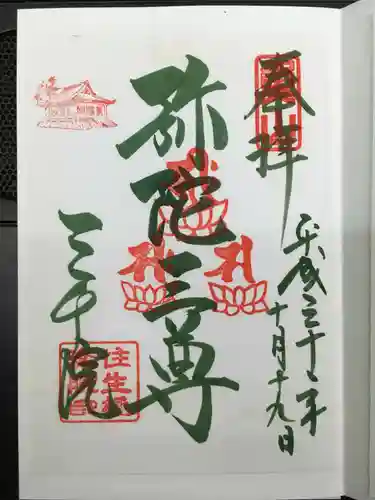 奉拝
平成三十年
十月十九日
弥陀三尊
三千院